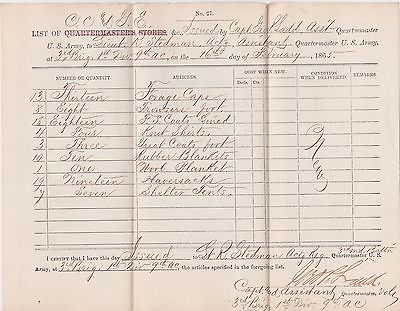 C. C. & G. E.
No. 27.
LIST OF QUARTERMASTER'S STORES, &c., Issued by Capt Geo P Ladd Asst Quartermaster
U. S. Army, to Lieut R. Stedman Actg Assistant Quartermaster U. S. Army,
at 3rd Brig 1st Div 9th A.C. on the 16th day of February, 1865.
NUMBER OR QUANTITY. ARTICLES. COST WHEN NEW. CONDITION WHEN DELIVERED.
Dolls. Cts.
13 Thirteen Forage Caps
8 Eight Trousers foot
18 Eighteen F. S. Coats lined
4 Four Knit Shirts
3 Three Great Coats foot
10 Ten Rubber Blankets
1 One Wool Blanket
19 Nineteen Haversacks
7 Seven Shelter Tents
I CERTIFY that I have this day Issued to Lt R Stedman Quartermaster U. S.
Army, at 3rd Brig 1st Div 9th A.C. the articles specified in the foregoing list.
Capt and Assistant Quartermaster Vols
3rd Brig 1st Div 9th A.C.